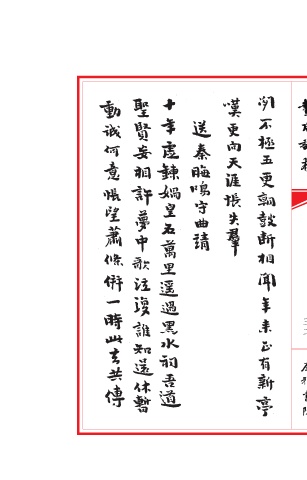 不極五更銅鼓断相聞年来正有新亭
嘆更向天涯悵失群
送秦晦鳴守曲靖
十年虛鍊媧皇石萬里遥過黑水祠吾道
聖賢妄相許夢中歌泣復誰知還休暫
動誠何意悵望蕭條術一時此去共傳